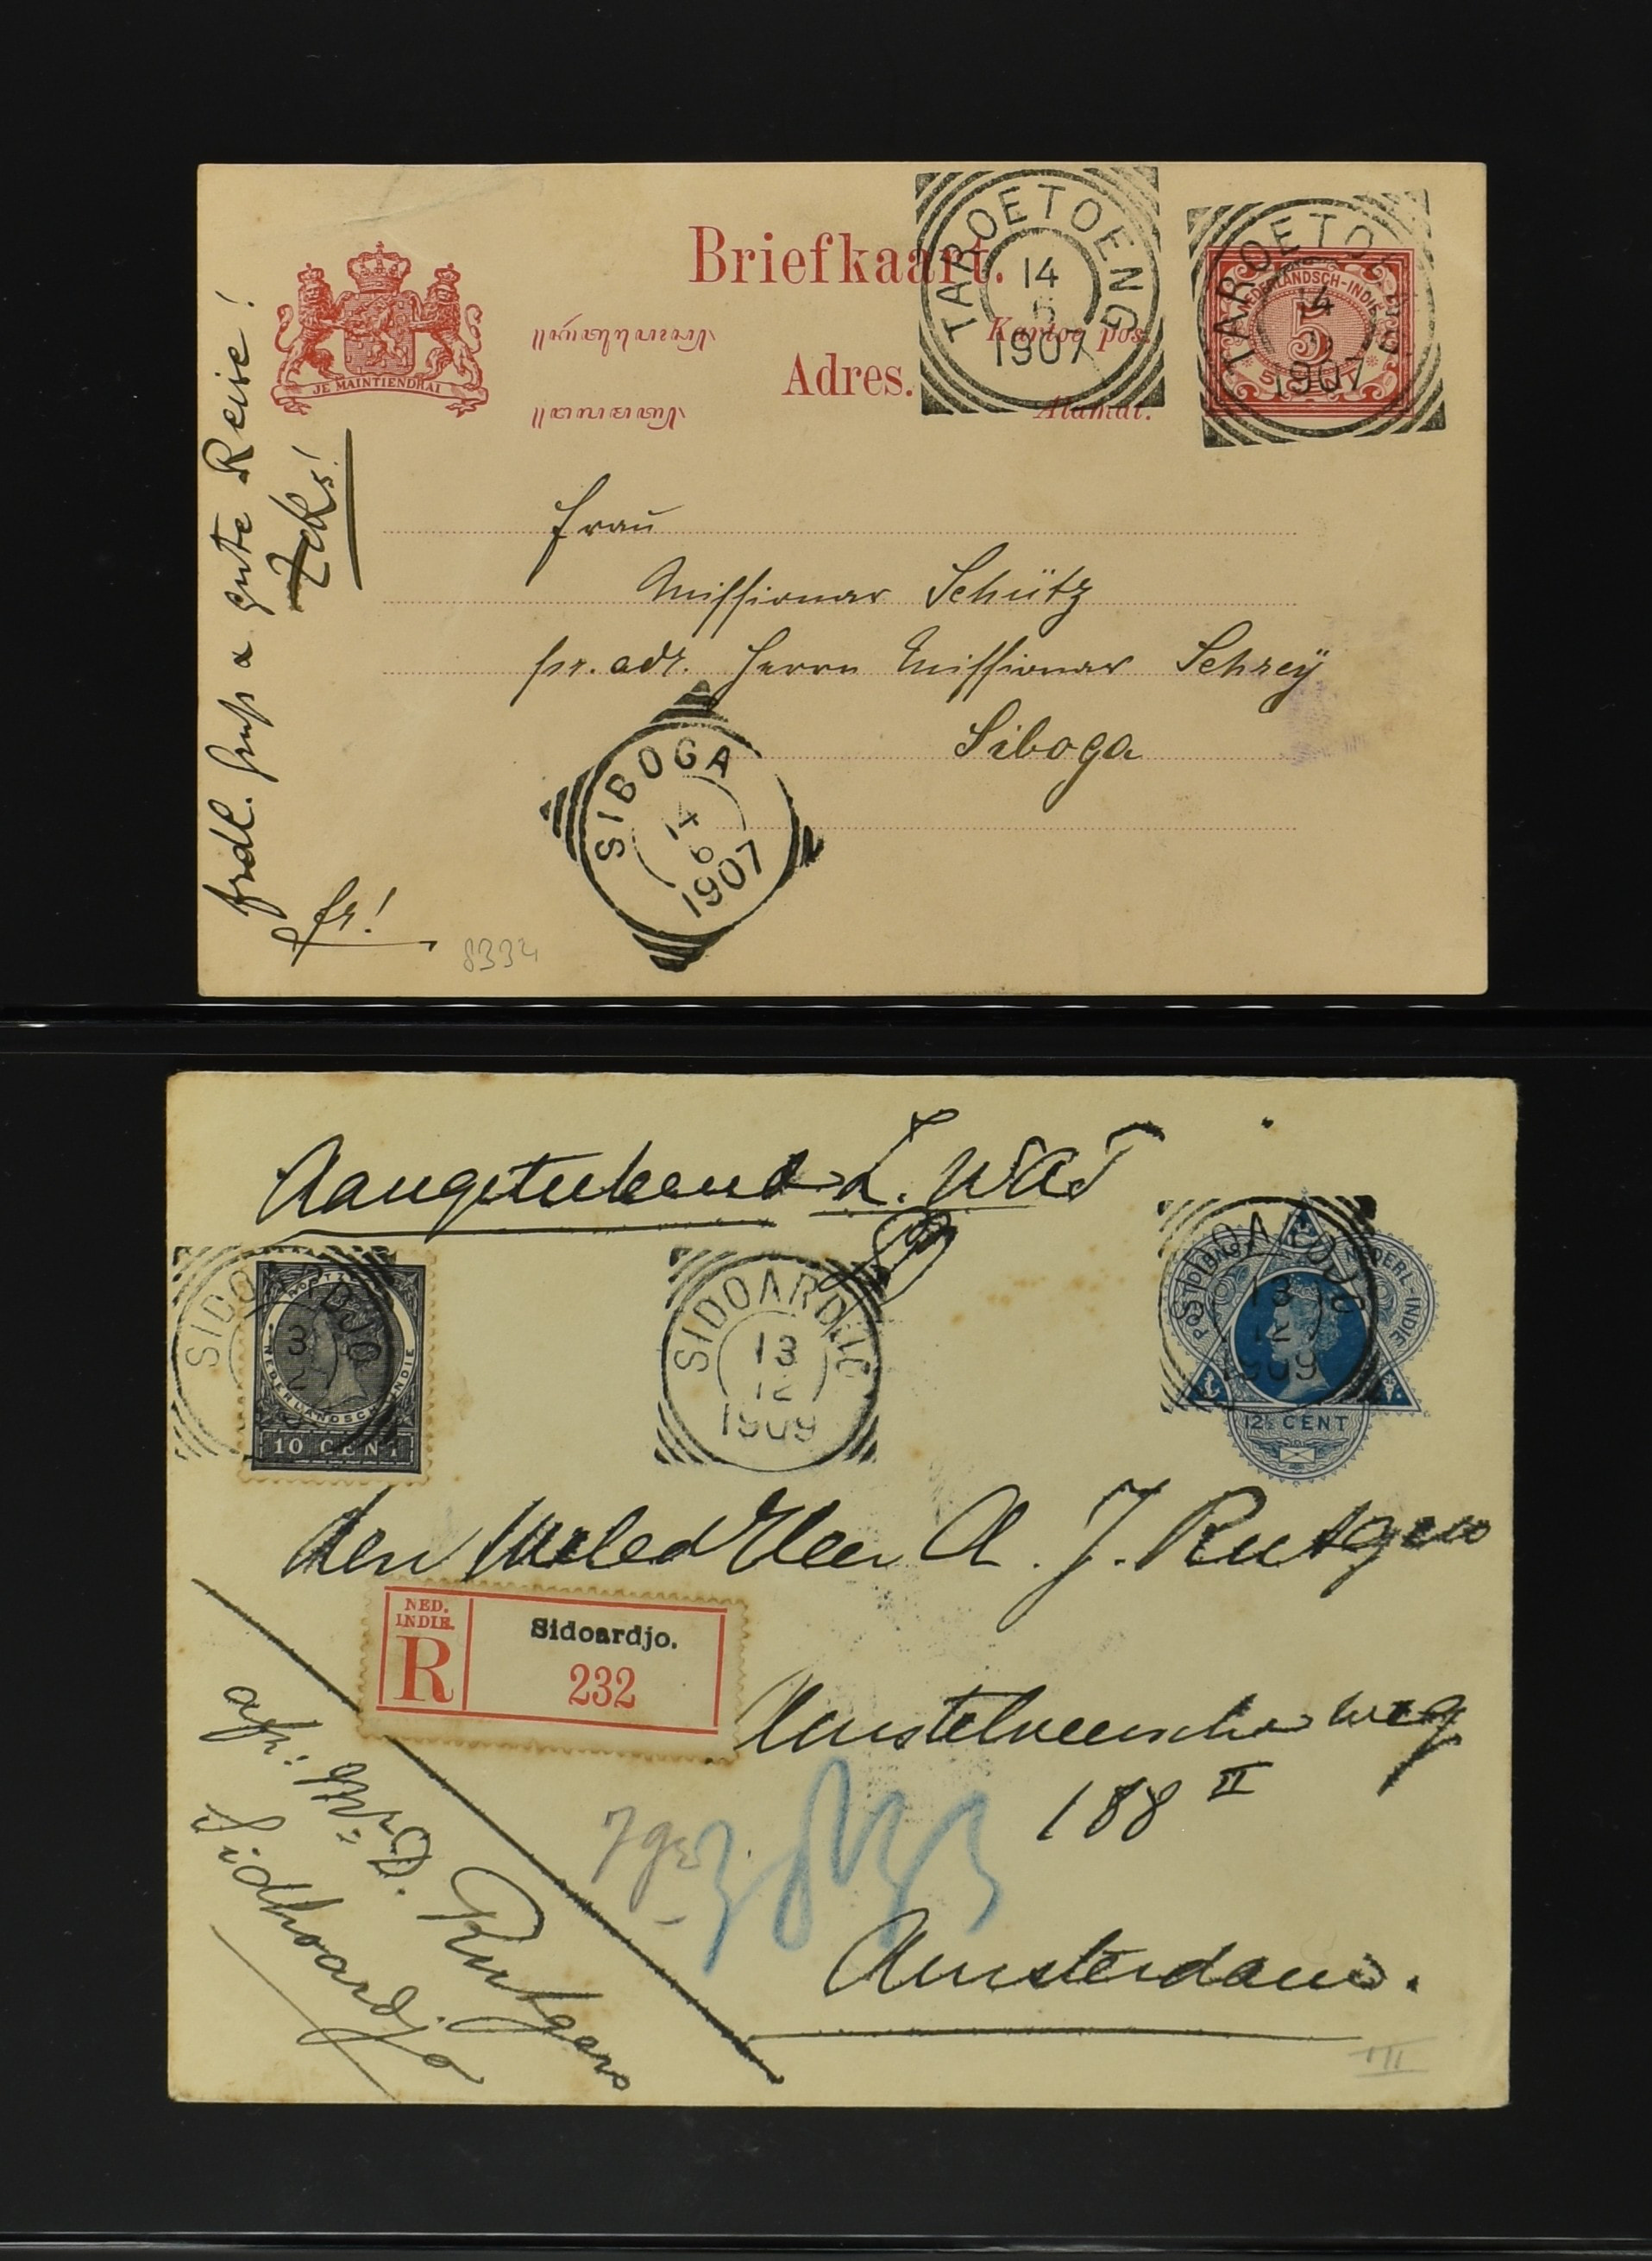 Briefkaart.
Kartoe pos.
Adres.
Alamat.
JE MAINTIENDRAI
TAROETOENG
14
6
1907
TAROETOENG
14
1907
NEDERLANDSCH-INDIË
5
5 CENT
frdl. Gruß a gute Reise!
fr!
Frau
Missionar Schütz
pr. adr. Herrn Missionar Schrey
Siboga
SIBOGA
14
6
1907
8334
Aangetekend
SIDOARDJO
3
10 CENT
NEDERLANDSCH-INDIE
SIDOARDJO
13
12
1909
SIDOARDJO
13
12
1909
NEDERL-INDIE
12½ CENT
Den Weled Heer A. J. Rutgers
NED.
INDIE.
R
Sidoardjo.
232
Amstelveensche weg
188 II
Amsterdam.
afz: D. Rutgers
Sidhoardjo
III